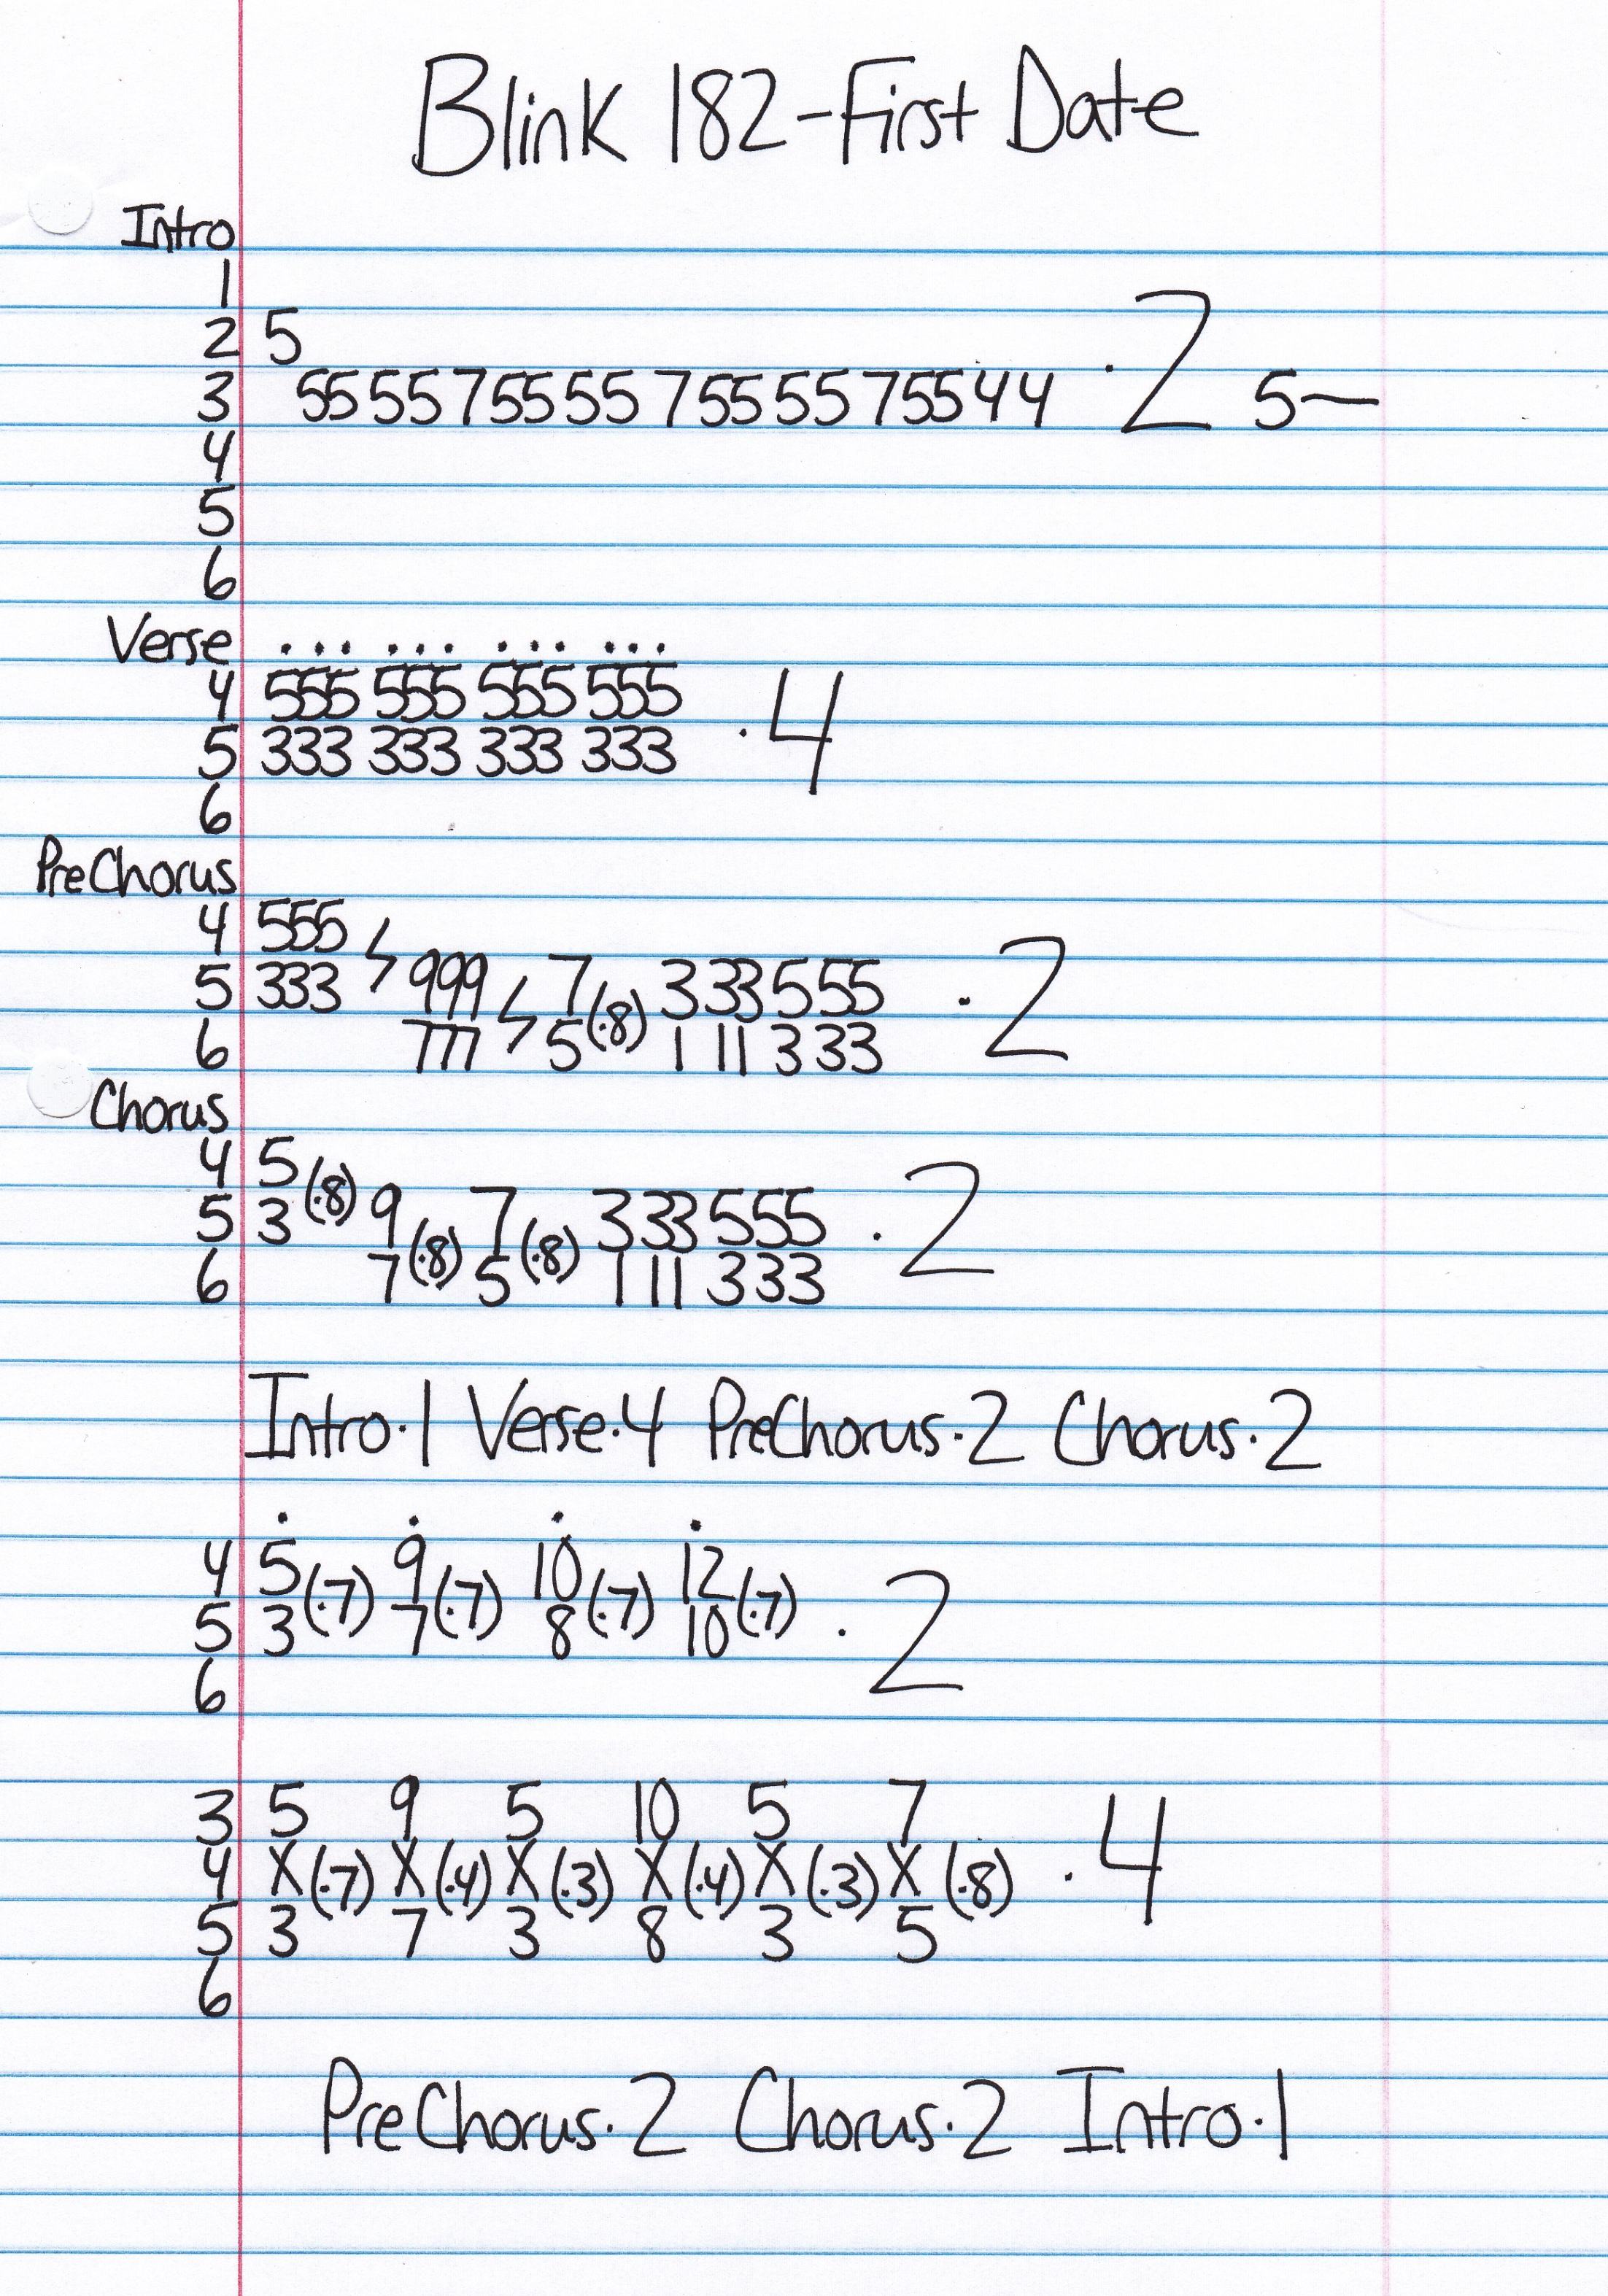 Blink 182-First Date
Intro
1
2 5
3 55 55 7 55 55 7 55 55 7 55 4 4 · 2 5—
4
5
6
Verse . . . . . . . . . . . .
4 555 555 555 555
5 333 333 333 333 · 4
6
PreChorus
4 555
5 333 999 7 (·8) 3 33 555 · 2
6 777 5 1 11 3 33
Chorus
4 5
5 3 (·8) 9 7 3 33 555 · 2
6 7 (·8) 5 (·8) 1 11 333
Intro·1 Verse·4 PreChorus·2 Chorus·2
. . . .
4 5 (·7) 9 (·7) 10 (·7) 12 (·7)
5 3 7 8 10 · 2
6
3 5 9 5 10 5 7
4 X (·7) X (·4) X (·3) X (·4) X (·3) X (·8) · 4
5 3 7 3 8 3 5
6
PreChorus·2 Chorus·2 Intro·1